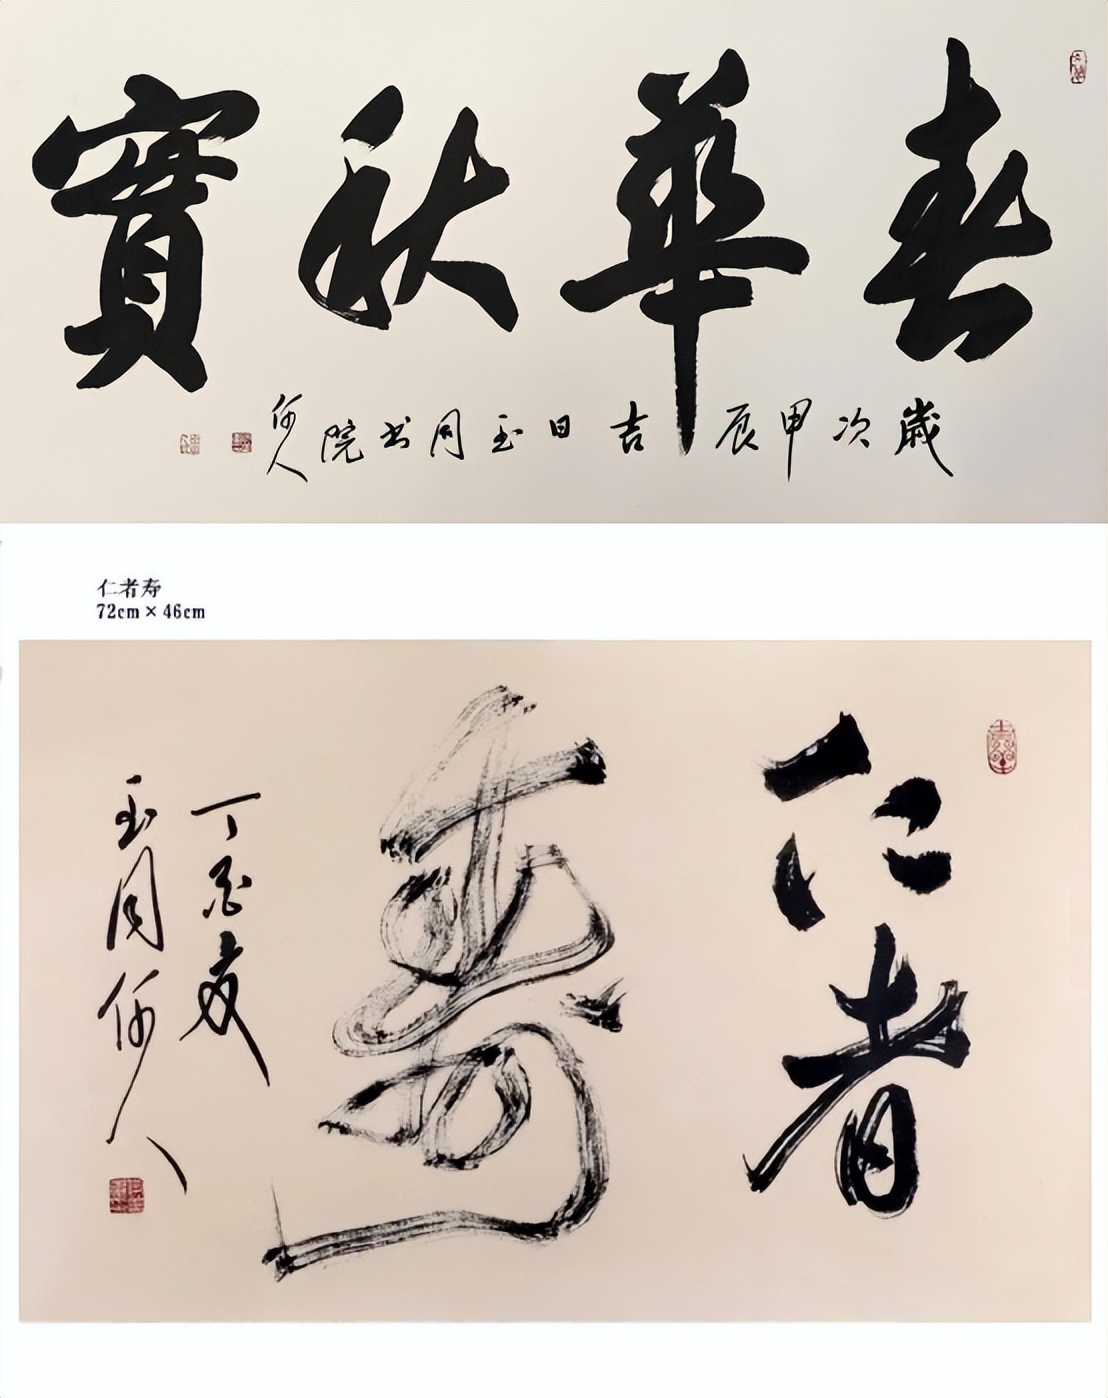 春華秋實
歲次甲辰吉日玉同书院何人
仁者寿
72cm×46cm
仁者
壽
丁酉夜
玉同何人